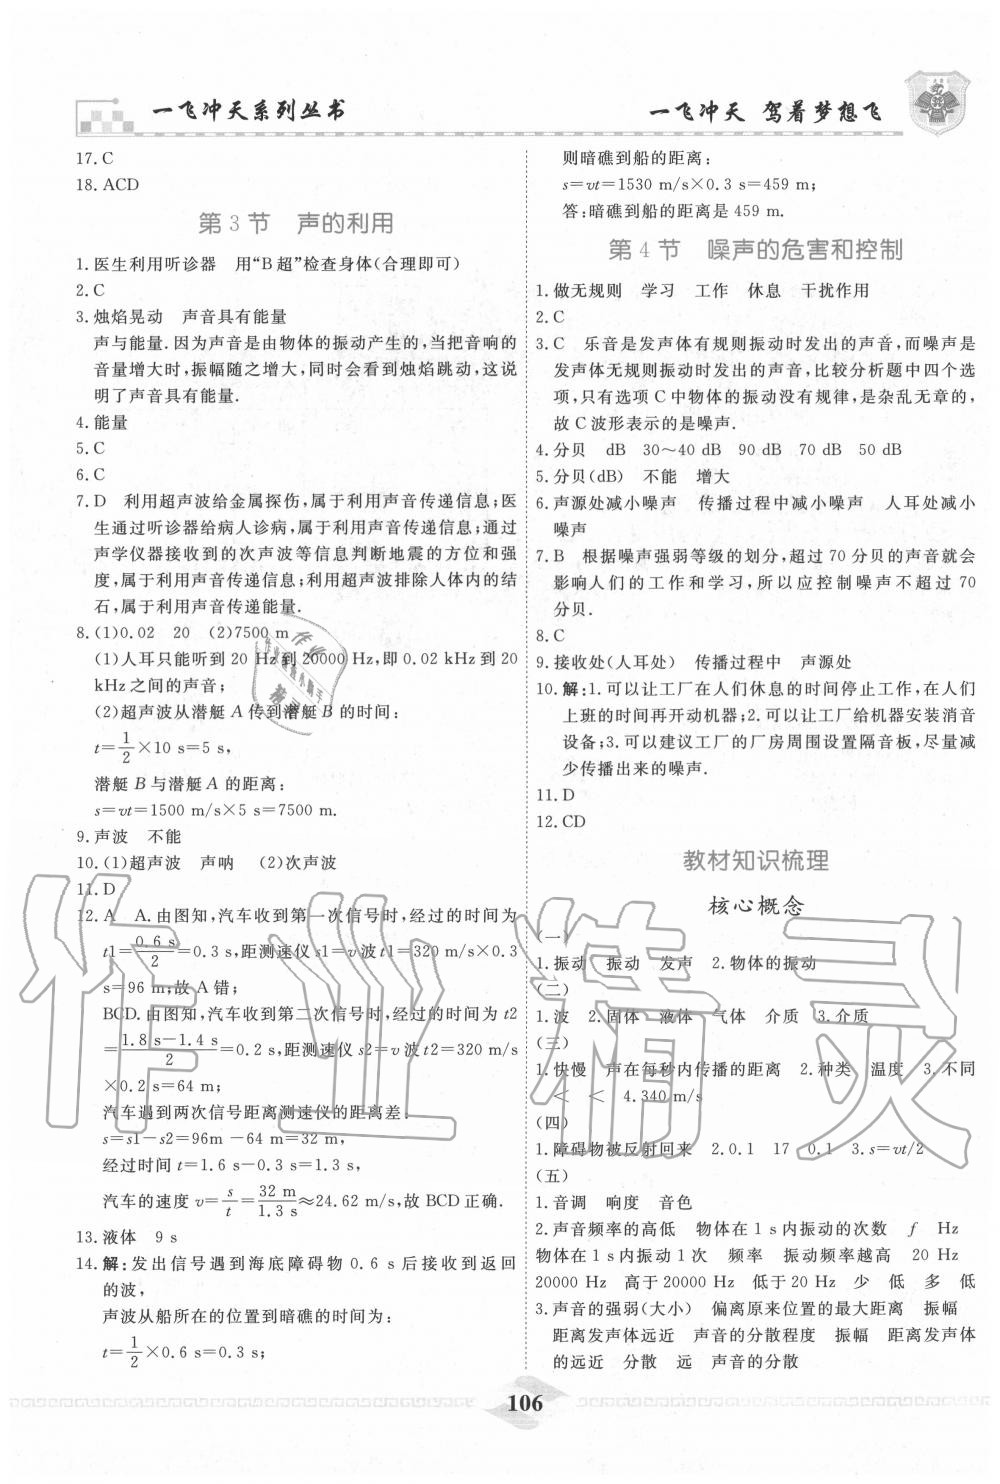 一飞冲天系列丛书
一飞冲天 驾着梦想飞
17. C
18. ACD
第3节 声的利用
1. 医生利用听诊器 用“B超”检查身体(合理即可)
2. C
3. 烛焰晃动 声音具有能量
声与能量. 因为声音是由物体的振动产生的,当把音响的
音量增大时,振幅随之增大,同时会看到烛焰跳动,这说
明了声音具有能量.
4. 能量
5. C
6. C
7. D 利用超声波给金属探伤,属于利用声音传递信息;医
生通过听诊器给病人诊病,属于利用声音传递信息;通过
声学仪器接收到的次声波等信息判断地震的方位和强
度,属于利用声音传递信息;利用超声波排除人体内的结
石,属于利用声音传递能量.
8. (1)0.02 20 (2)7500 m
(1)人耳只能听到 20 Hz 到 20000 Hz,即 0.02 kHz 到 20
kHz 之间的声音;
(2)超声波从潜艇 A 传到潜艇 B 的时间:
t=1/2×10 s=5 s,
潜艇 B 与潜艇 A 的距离:
s=vt=1500 m/s×5 s=7500 m.
9. 声波 不能
10. (1)超声波 声呐 (2)次声波
11. D
12. A A. 由图知,汽车收到第一次信号时,经过的时间为
t1=0.6 s/2=0.3 s,距测速仪 s1=v 波 t1=320 m/s×0.3
s=96 m;故 A 错;
BCD. 由图知,汽车收到第二次信号时,经过的时间为 t2
=1.8 s-1.4 s/2=0.2 s,距测速仪 s2=v 波 t2=320 m/s
×0.2 s=64 m;
汽车遇到两次信号距离测速仪的距离差:
s=s1-s2=96m-64 m=32 m,
经过时间 t=1.6 s-0.3 s=1.3 s,
汽车的速度 v=s/t=32 m/1.3 s≈24.62 m/s,故 BCD 正确.
13. 液体 9 s
14. 解:发出信号遇到海底障碍物 0.6 s 后接收到返回
的波,
声波从船所在的位置到暗礁的时间为:
t=1/2×0.6 s=0.3 s;
则暗礁到船的距离:
s=vt=1530 m/s×0.3 s=459 m;
答:暗礁到船的距离是 459 m.
第4节 噪声的危害和控制
1. 做无规则 学习 工作 休息 干扰作用
2. C
3. C 乐音是发声体有规则振动时发出的声音,而噪声是
发声体无规则振动时发出的声音,比较分析题中四个选
项,只有选项 C 中物体的振动没有规律,是杂乱无章的,
故 C 波形表示的是噪声.
4. 分贝 dB 30～40 dB 90 dB 70 dB 50 dB
5. 分贝(dB) 不能 增大
6. 声源处减小噪声 传播过程中减小噪声 人耳处减小
噪声
7. B 根据噪声强弱等级的划分,超过 70 分贝的声音就会
影响人们的工作和学习,所以应控制噪声不超过 70
分贝.
8. C
9. 接收处(人耳处) 传播过程中 声源处
10. 解:1. 可以让工厂在人们休息的时间停止工作,在人们
上班的时间再开动机器;2. 可以让工厂给机器安装消音
设备;3. 可以建议工厂的厂房周围设置隔音板,尽量减
少传播出来的噪声.
11. D
12. CD
教材知识梳理
核心概念
(一)
1. 振动 振动 发声 2. 物体的振动
(二)
1. 波 2. 固体 液体 气体 介质 3. 介质
(三)
1. 快慢 声在每秒内传播的距离 2. 种类 温度 3. 不同
< < 4. 340 m/s
(四)
1. 障碍物被反射回来 2. 0.1 17 0.1 3. s=vt/2
(五)
1. 音调 响度 音色
2. 声音频率的高低 物体在 1 s 内振动的次数 f Hz
物体在 1 s 内振动 1 次 频率 振动频率越高 20 Hz
20000 Hz 高于 20000 Hz 低于 20 Hz 少 低 多 低
3. 声音的强弱(大小) 偏离原来位置的最大距离 振幅
距离发声体远近 声音的分散程度 振幅 距离发声体
的远近 分散 远 声音的分散
106
作业精灵